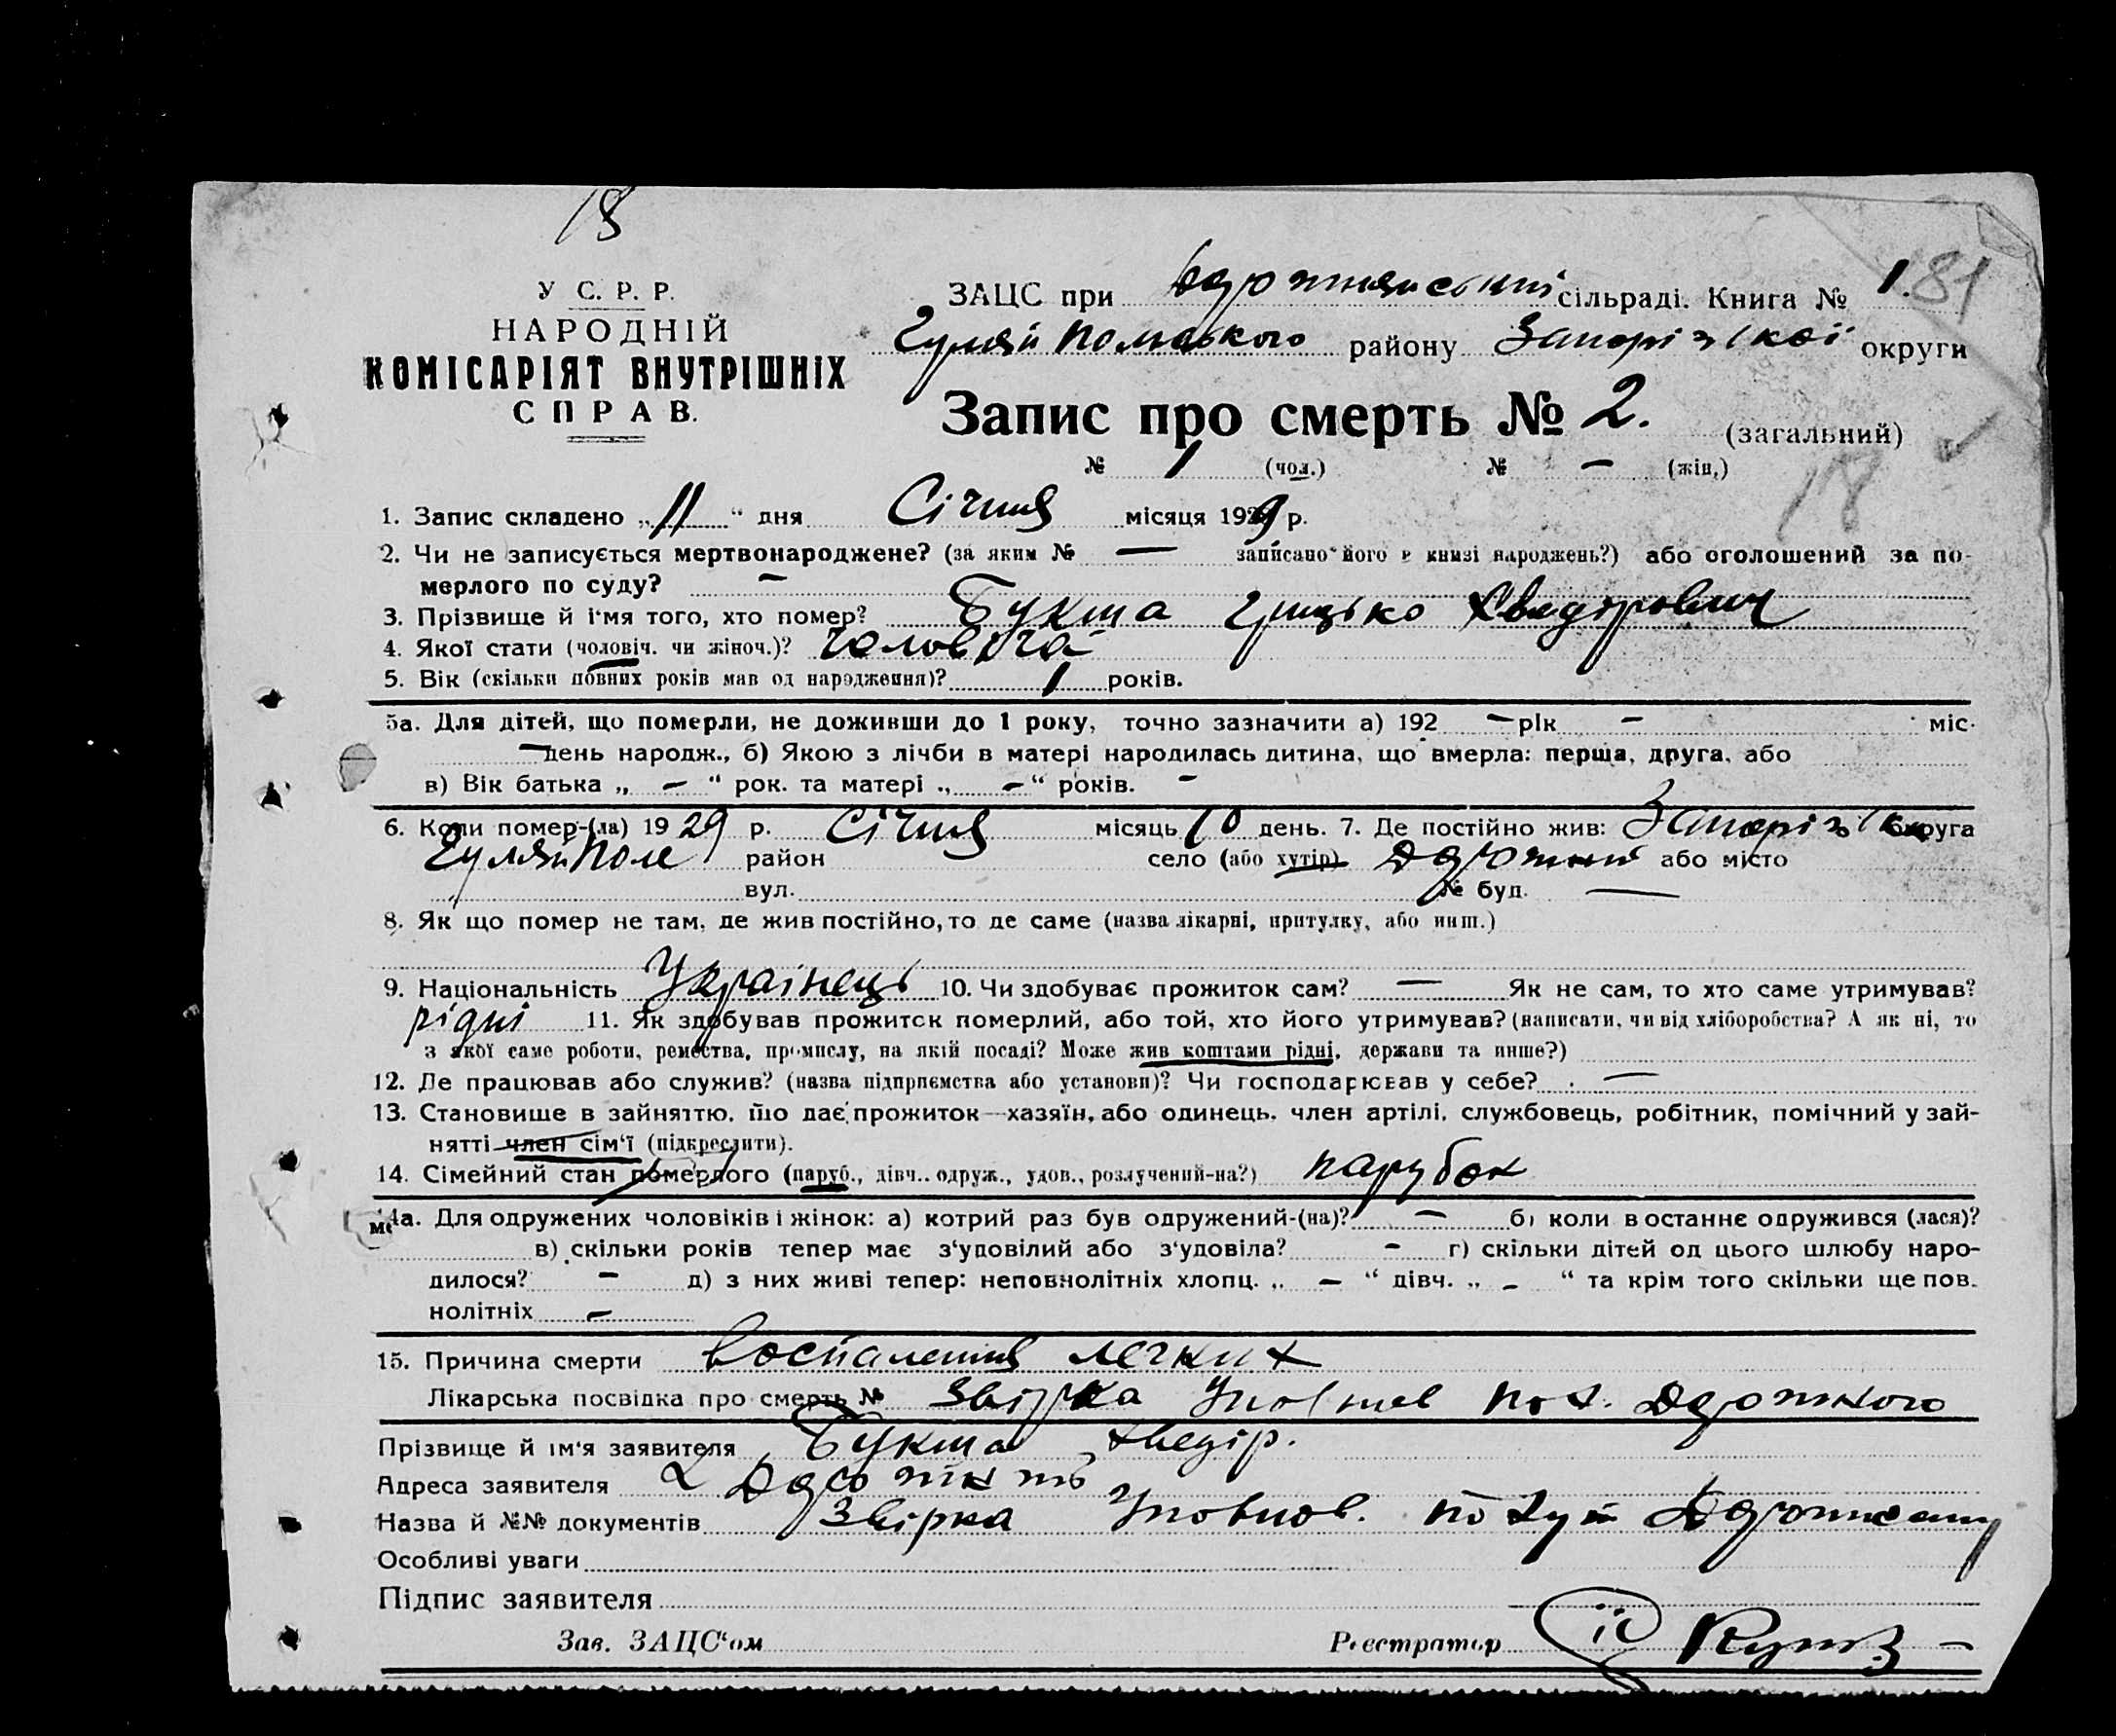 18
У С. Р. Р.
НАРОДНІЙ
КОМІСАРІЯТ ВНУТРІШНІХ
СПРАВ.
ЗАЦС при сільраді. Книга № 1. 81
Гуляй Польского району Запорізької округи
Запис про смерть № 2. (загальний)
№ 1 (чол.) № — (жін.)
18
1. Запис складено „11“ дня Січня місяця 1929 р.
2. Чи не записується мертвонароджене? (за яким № — записано його в книзі народжень?) або оголошений за по-
мерлого по суду? —
3. Прізвище й і'мя того, хто помер? Букша Грицько Хведорович
4. Якої стати (чоловіч. чи жіноч.)? чоловіча
5. Вік (скільки повних років мав од народження)? 1 років.
5а. Для дітей, що померли, не доживши до 1 року, точно зазначити а) 192 — рік — міс.
— день народж., б) Якою з лічби в матері народилась дитина, що вмерла: перша, друга, або
в) Вік батька „ — “ рок. та матері „ — “ років. —
6. Коли помер-(ла) 1929 р. Січня місяць 10 день. 7. Де постійно жив: округа
Гуляйполе район село (або хутір) або місто
вул. № буд. —
8. Як що помер не там, де жив постійно, то де саме (назва лікарні, притулку, або инш.)
9. Національність Українець 10. Чи здобував прожиток сам? — Як не сам, то хто саме утримував?
рідні 11. Як здобував прожиток померлий, або той, хто його утримував? (написати, чи від хліборобства? А як ні, то
з якої саме роботи, ремества, промислу, на якій посаді? Може жив коштами рідні, держави та инше?)
12. Де працював або служив? (назва підприємства або установи)? Чи господарював у себе? —
13. Становище в зайняттю, що дає прожиток—хазяїн, або одинець, член артілі, службовець, робітник, помічний у зай-
нятті член сім'ї (підкреслити).
14. Сімейний стан померлого (паруб., дівч.. одруж., удов., розлучений-на?) парубок
14а. Для одружених чоловіків і жінок: а) котрий раз був одружений-(на)? — б) коли востаннє одружився (лася)?
в) скільки років тепер має з'удовілий або з'удовіла? — г) скільки дітей од цього шлюбу наро-
дилося? — д) з них живі тепер: неповнолітніх хлопц. „ — “ дівч. „ — “ та крім того скільки ще пов-
нолітніх —
15. Причина смерти воспаления легких
Лікарська посвідка про смерть № Звірка пох.
Прізвище й ім'я заявителя Букша Хведір.
Адреса заявителя
Назва й №№ документів Звірка
Особливі уваги
Підпис заявителя
Зав. ЗАЦС'ом Реєстратор